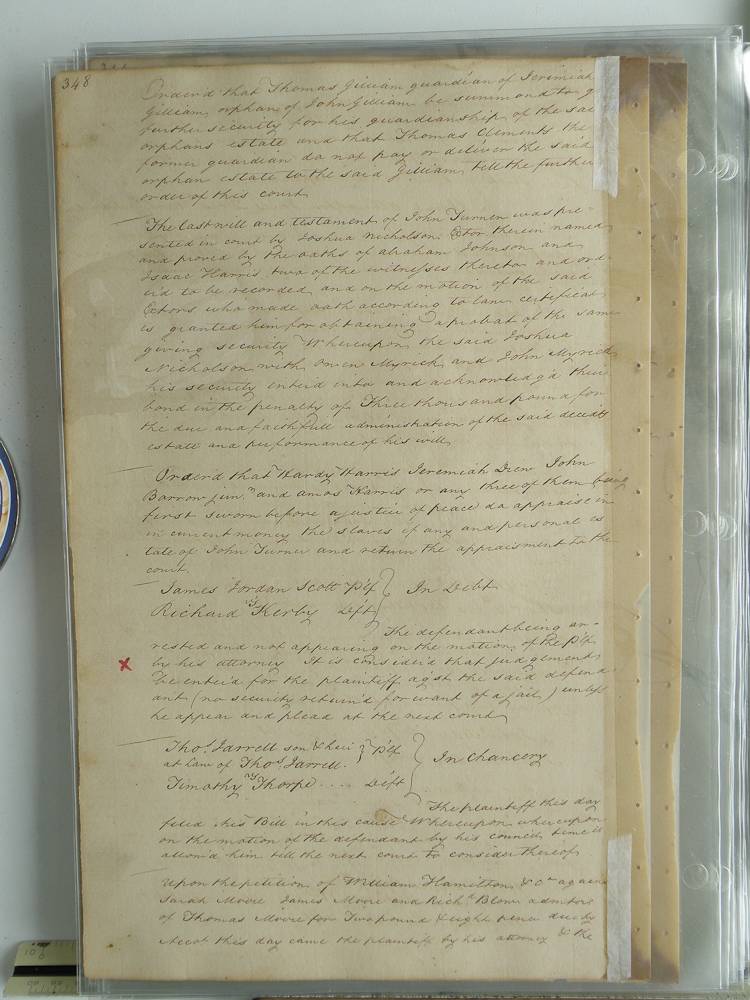 348
Orderd that Thomas Gilliam guardian of Jerimiah
Gilliam orphan of John Gilliam be summond to g
further security for his guardianship of the sai
orphans estate and that Thomas Clements the
former guardian do not pay or deliver the said
orphan estate to the said Gilliam till the further
order of this court
The last will and testament of John Turner was pre-
sented in court by Joshua Nicholson Extor therein named
and proved by the oaths of abraham Johnson and
Isaac Harris two of the witnesses thereto and ord
erd to be recorded and on the motion of the said
Extors who made oath according to law certificat
is granted him for obtaining a probat of the same
giving security Whereupon the said Joshua
Nicholson with Owen Myrick and John Myrick
his security enterd into and acknowledg'd their
bond in the penalty of Three thousand pound for
the due and faithfull administration of the said decedts
estate and performance of his will
Orderd that Hardy Harris Jeremiah Drew John
Barrow junr and amos Harris or any three of them being
first sworn before a justice of peace do appraise in
in current money the slaves if any and personal es
tate of John Turner and return the appraisment to the
court
James Jordan Scott Pltf } In Debt
vs
Richard Kerby Deft
The defendant being ar-
rested and not appearing on the motion of the Pltf
by his attorney It is consider'd that judgement
be enter'd for the plaintiff agst the said defend
ant (no security return'd for want of a jail) unless
he appear and plead at the next court
Thos. Jarrell son & heir } Pltf } In Chancery
at Law of Thos. Jarrell
vs
Timothy Thorpe .... Deft
The plaintiff this day
filed his Bill in this cause Whereupon whereupon
on the motion of the defendant by his council time is
allow'd him till the next court to consider thereof
Upon the petition of William Hamilton & Co. again
Sarah Moore James Moore and Richd. Blow admtors
of Thomas Moore for Two pound & eight pence due by
Accot this day came the plaintiff by his attorney & the